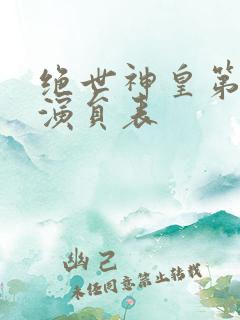 绝世神皇第
演员表
幽己
未经同意禁止转载